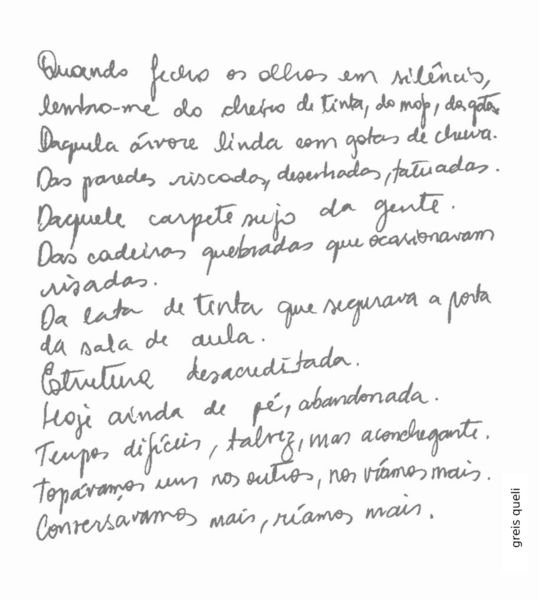 Quando fecho os olhos em silêncio,
lembro-me do cheiro de tinta, do mop, da gota.
Daquela árvore linda com gotas de chuva.
Das paredes riscadas, desenhadas, tatuadas.
Daquele carpete sujo da gente.
Das cadeiras quebradas que ocasionavam
risadas.
Da lata de tinta que segurava a porta
da sala de aula.
Estrutura desacreditada.
Hoje ainda de pé, abandonada.
Tempos difíceis, talvez, mas aconchegante.
Topávamos uns nos outros, nos víamos mais.
Conversávamos mais, ríamos mais.
greis queli